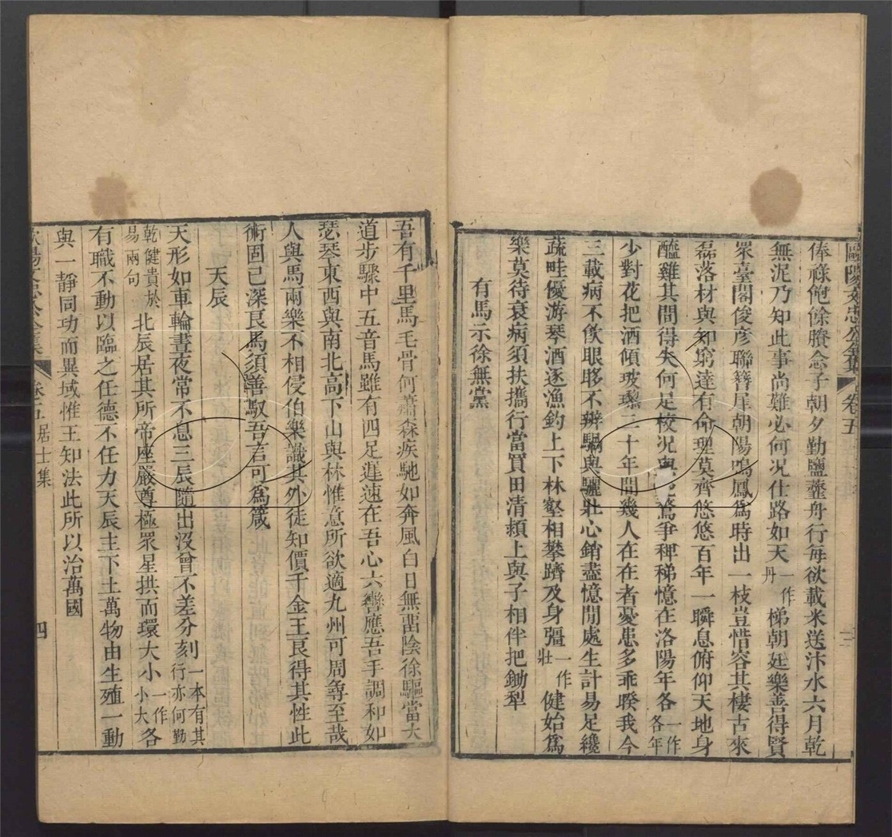 歐陽文忠公全集 卷五
俸祿飽餘賸念子朝夕勤鹽虀舟行每欲載米送汴水六月乾
無泥乃知此事尚難必何況仕路如天一作丹梯朝廷樂善得賢
眾臺閣俊彥聯簪犀朝陽鳴鳳為時出一枝豈惜容其棲古來
磊落材與知窮達有命理莫齊悠悠百年一瞬息俯仰天地身
醯雞其間得失何足校況與鳧鶩爭稗稊憶在洛陽年各一作各年
少對花把酒傾玻瓈二十年間幾人在在者憂患多乖暌我今
三載病不飲眼眵不辨騧與驪壯心銷盡憶閒處生計易足纔
蔬畦優游琴酒逐漁釣上下林壑相攀躋及身彊一作壯健始為
樂莫待衰病須扶攜行當買田清潁上與子相伴把鋤犁
有馬示徐無黨
吾有千里馬毛骨何蕭森疾馳如奔風白日無畱陰徐驅當大
道步驟中五音馬雖有四足遲速在吾心六轡應吾手調和如
瑟琴東西與南北高下山與林惟意所欲適九州可周尋至哉
人與馬兩樂不相侵伯樂識其外徒知價千金王良得其性此
術固已深良馬須善馭吾言可為箴
天辰
天形如車輪晝夜常不息三辰隨出沒曾不差分刻一本有其行亦何勤
乾健貴於易兩句北辰居其所帝座嚴尊極眾星拱而環大小一作小大各
有職不動以臨之任德不任力天辰主下土萬物由生殖一動
與一靜同功而異域惟王知法此所以治萬國
歐陽文忠公全集 卷五 居士集 四